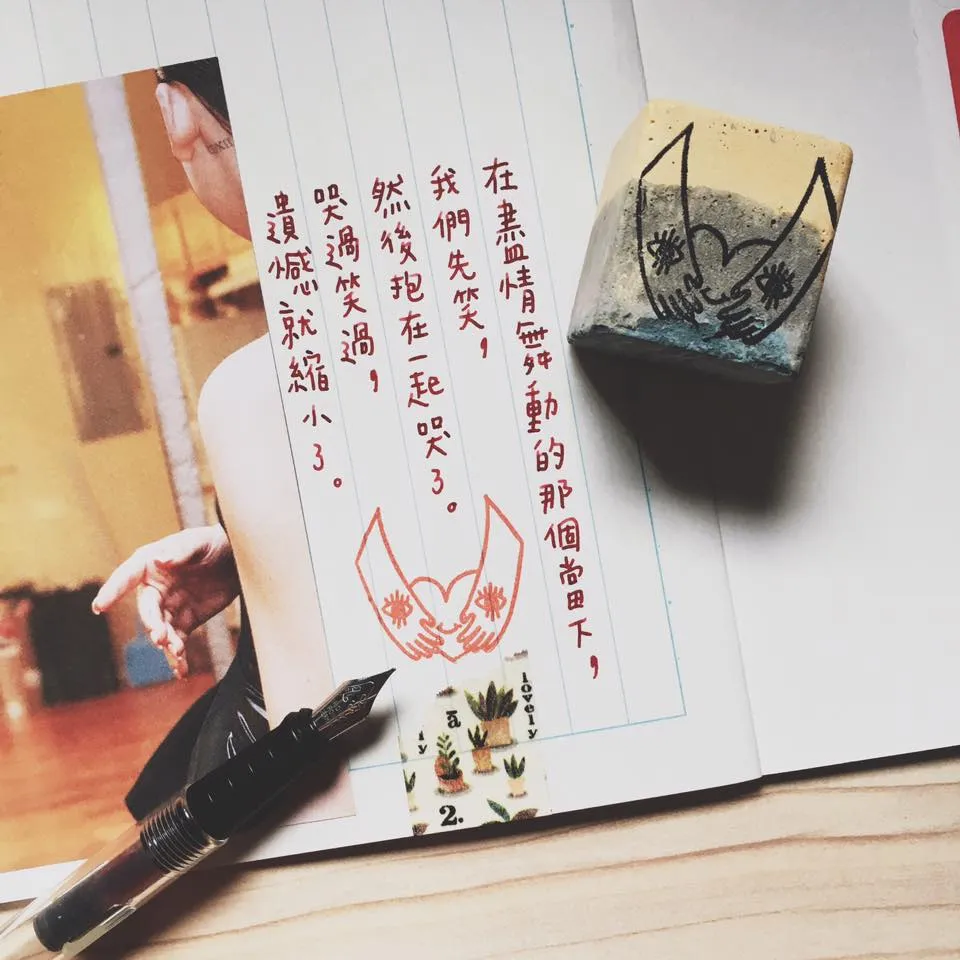 在盡情舞動的那個當下，
我們先笑，
然後抱在一起哭了。
哭過笑過，
遺憾就縮小了。
lovely
ā
ly
2.